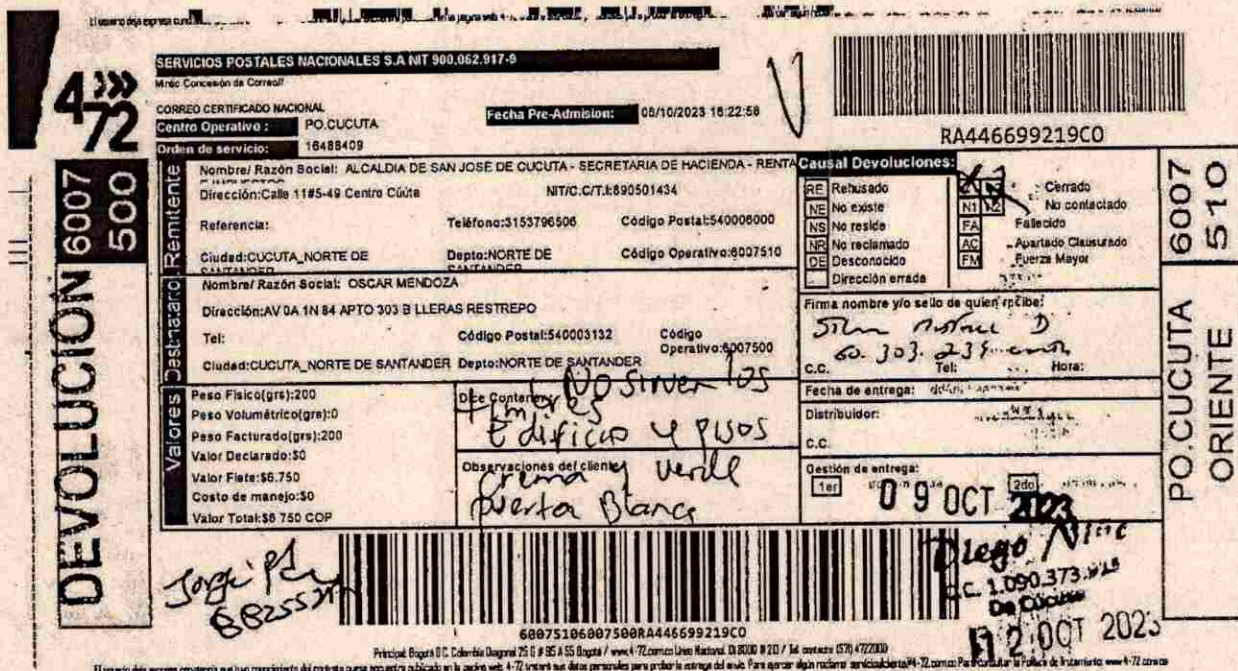 4-72
SERVICIOS POSTALES NACIONALES S.A NIT 900.062.917-9
Mintic Concesión de Correo//
CORREO CERTIFICADO NACIONAL
Centro Operativo : PO.CUCUTA
Fecha Pre-Admision: 06/10/2023 16:22:58
Orden de servicio: 16488409
RA446699219CO
DEVOLUCIÓN
6007
500
Remitente
Nombre/ Razón Social: ALCALDIA DE SAN JOSE DE CUCUTA - SECRETARIA DE HACIENDA - RENTA
Dirección:Calle 11#5-49 Centro Cúuta NIT/C.C/T.I:890501434
Referencia: Teléfono:3153796506 Código Postal:540006000
Ciudad:CUCUTA_NORTE DE SANTANDER Depto:NORTE DE SANTANDER Código Operativo:6007510
Destinatario
Nombre/ Razón Social: OSCAR MENDOZA
Dirección:AV 0A 1N 84 APTO 303 B LLERAS RESTREPO
Tel: Código Postal:540003132 Código Operativo:6007500
Ciudad:CUCUTA_NORTE DE SANTANDER Depto:NORTE DE SANTANDER
Valores
Peso Físico(grs):200
Peso Volumétrico(grs):0
Peso Facturado(grs):200
Valor Declarado:$0
Valor Flete:$6.750
Costo de manejo:$0
Valor Total:$6 750 COP
Dice Contener:
No sirven los
timbres
Edificio 4 pisos
Observaciones del cliente
crema y verde
puerta Blanca
Causal Devoluciones:
RE Rehusado
NE No existe
NS No reside
NR No reclamado
DE Desconocido
Dirección errada
Cerrado
N1 N2 No contactado
FA Fallecido
AC Apartado Clausurado
FM Fuerza Mayor
Firma nombre y/o sello de quien recibe:
C.C. Tel: Hora:
Fecha de entrega:
Distribuidor:
C.C.
Gestión de entrega:
1er 2do
09 OCT 2023
Diego
C.C. 1.090.373.
De Cúcuta
12 OCT 2023
6007
510
PO.CUCUTA
ORIENTE
Jorge
60075106007500RA446699219CO
Principal: Bogotá D.C. Colombia Diagonal 25 G # 95 A 55 Bogotá / www.4-72.com.co Línea Nacional: 01 8000 111 210 / Tel. contacto: (571) 4722000